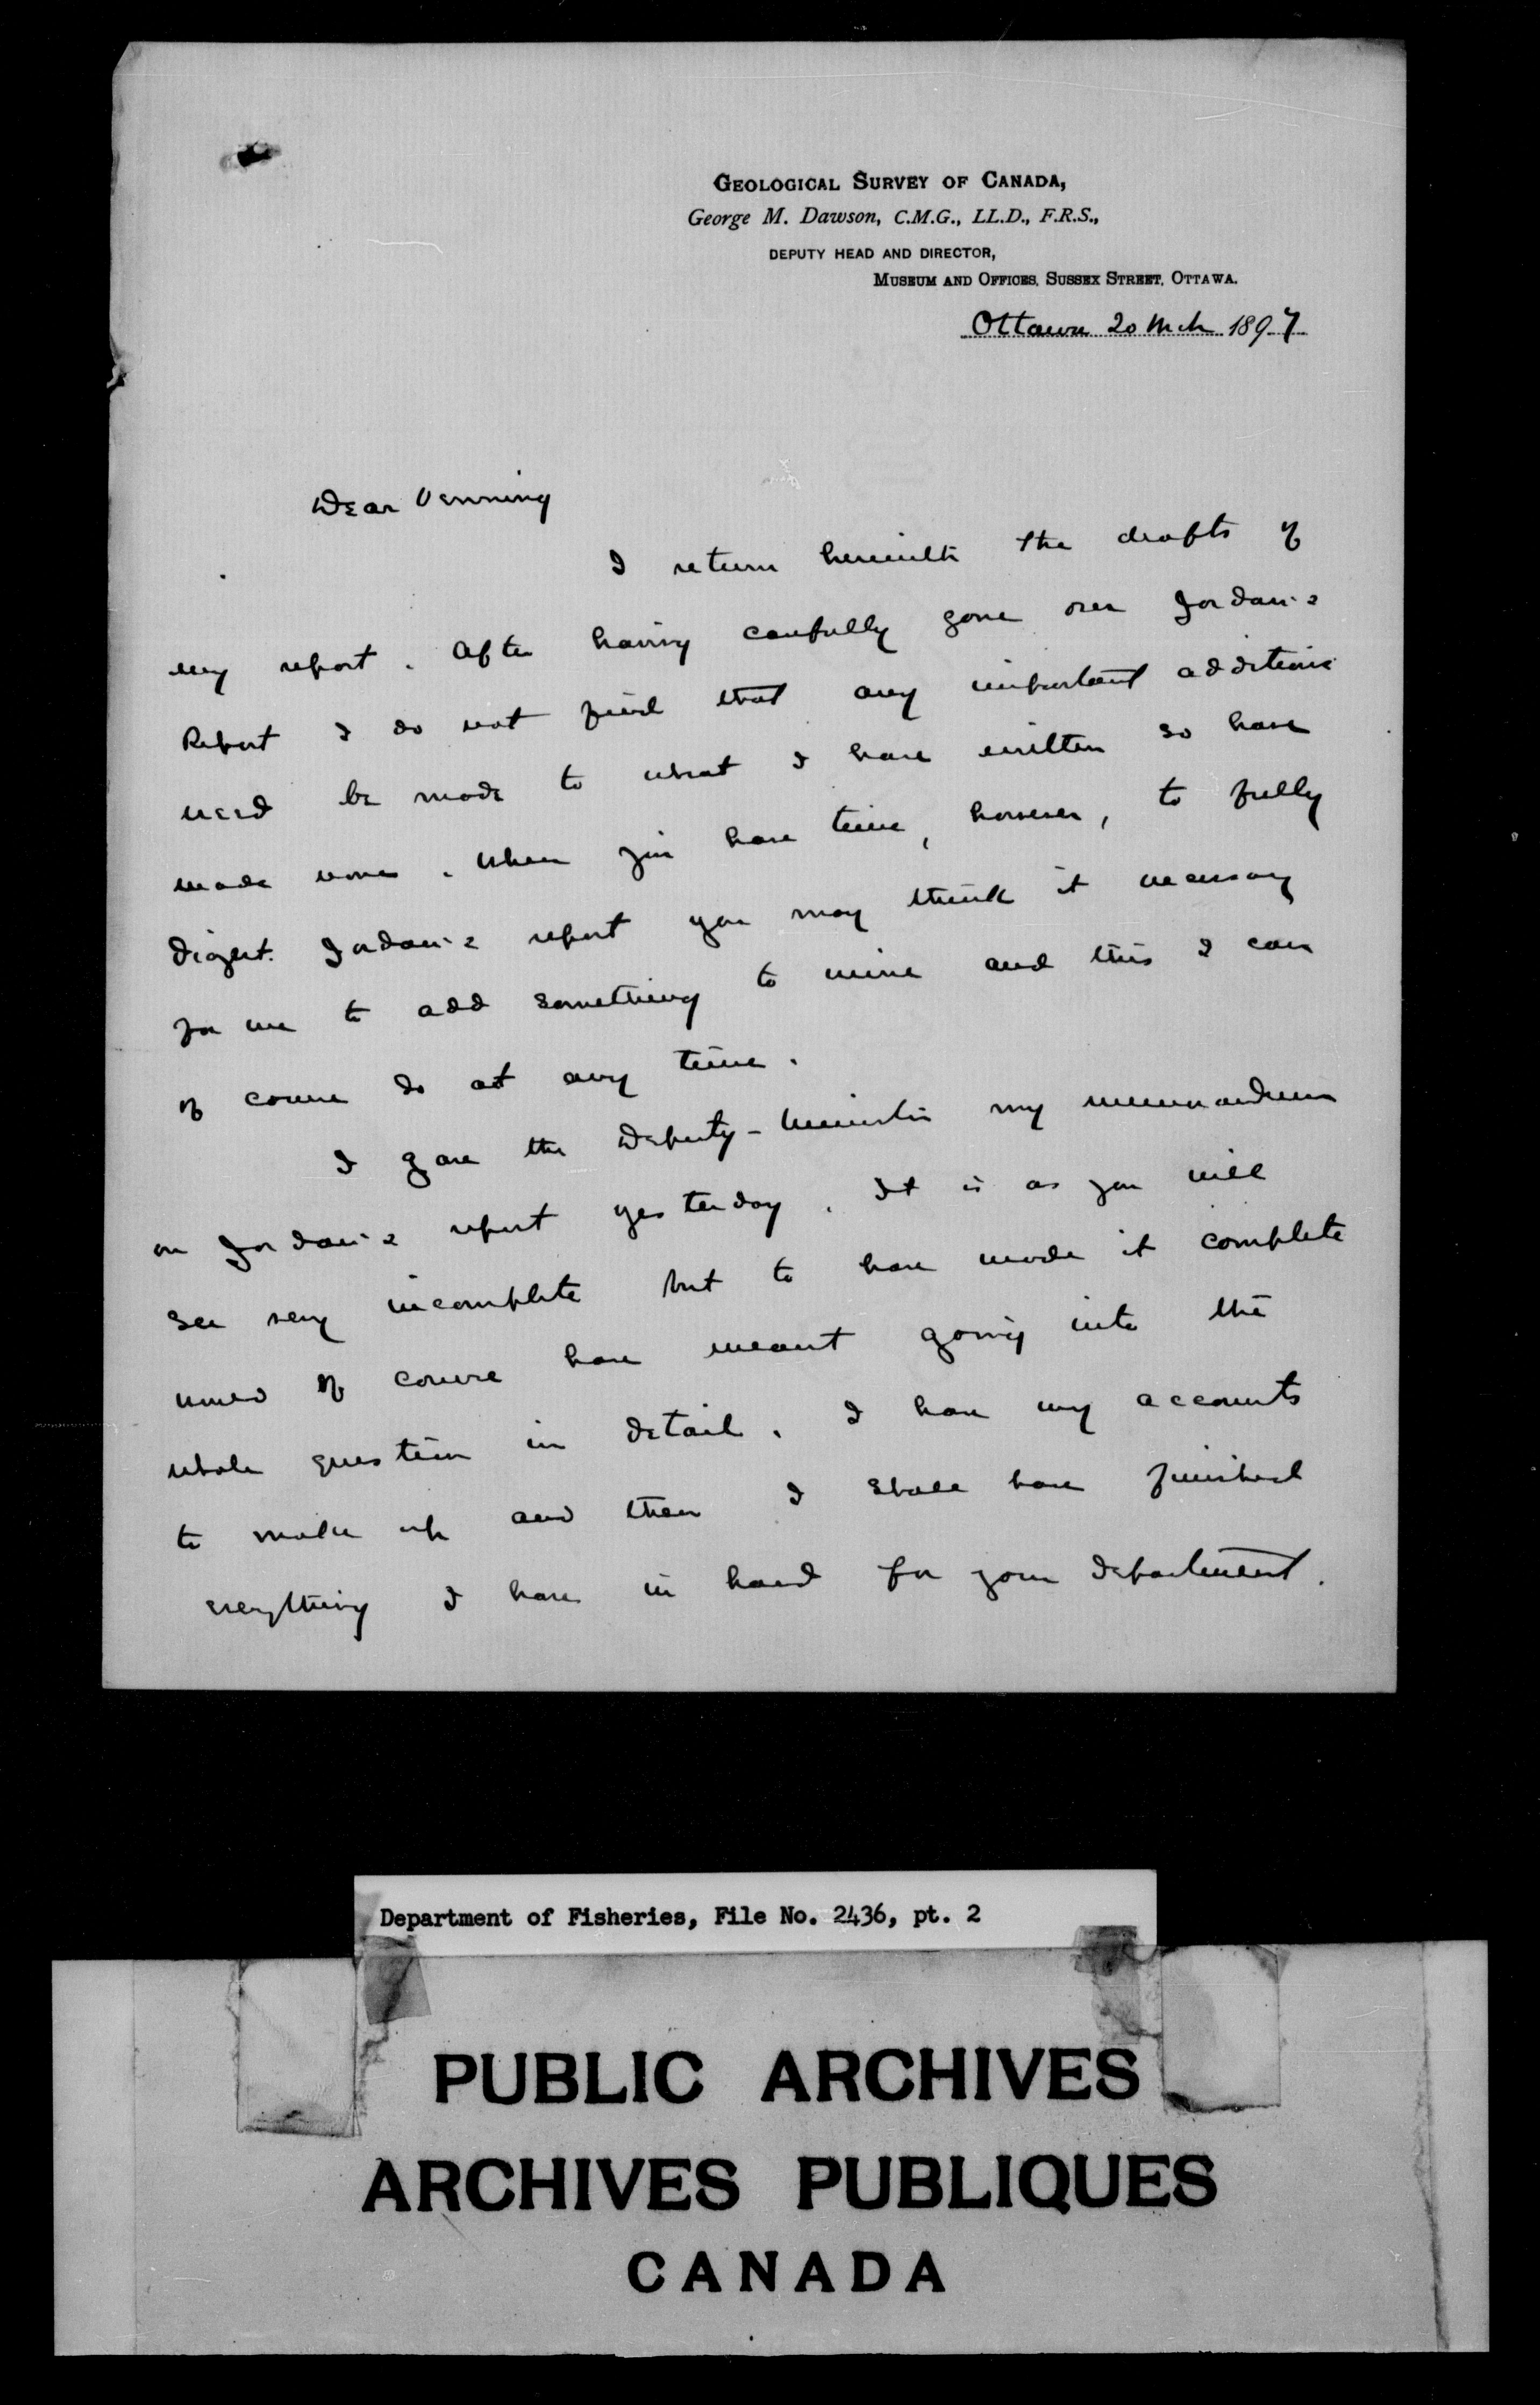 GEOLOGICAL SURVEY OF CANADA,
George M. Dawson, C.M.G., LL.D., F.R.S.,
DEPUTY HEAD AND DIRECTOR,
MUSEUM AND OFFICES, SUSSEX STREET, OTTAWA.
Ottawa 20 Mch 1897
Dear Venning
I return herewith the drafts of
my report. After having carefully gone over Jordan's
Report I do not find that any important additions
need be made to what I have written so have
made none. When you have time, however, to fully
digest Jordan's report you may think it necessary
for me to add something to mine and this I can
of course do at any time.
I gave the Deputy-Minister my memorandum
on Jordan's report yesterday. It is as you will
see very incomplete but to have made it complete
would of course have meant going into the
whole question in detail. I have my accounts
to make up and then I shall have finished
everything I have in hand for your department.
Department of Fisheries, File No. 2436, pt. 2
PUBLIC ARCHIVES
ARCHIVES PUBLIQUES
CANADA